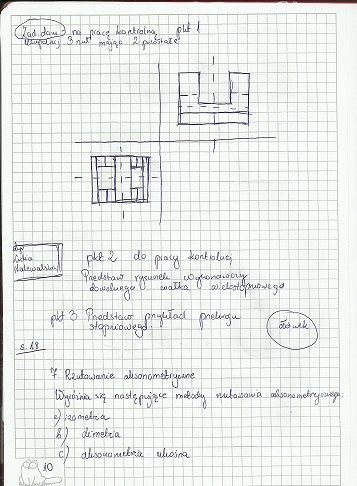 Zad. dom. na pracę kontrolną pkt 1
Uzupełnij 3 rzut mając 2 pozostałe
pkt 2 do pracy kontrolnej
Przedstaw rysunek wykonawczy
dowolnego wałka wielostopniowego
pkt 3 Przedstaw przykład przekroju
stopniowego.
ołówek
s. 18
7. Rzutowanie aksonometryczne
Wyróżnia się następujące metody rzutowania aksonometrycznego:
a) izometria
b) dimetria
c) aksonometria ukośna
10